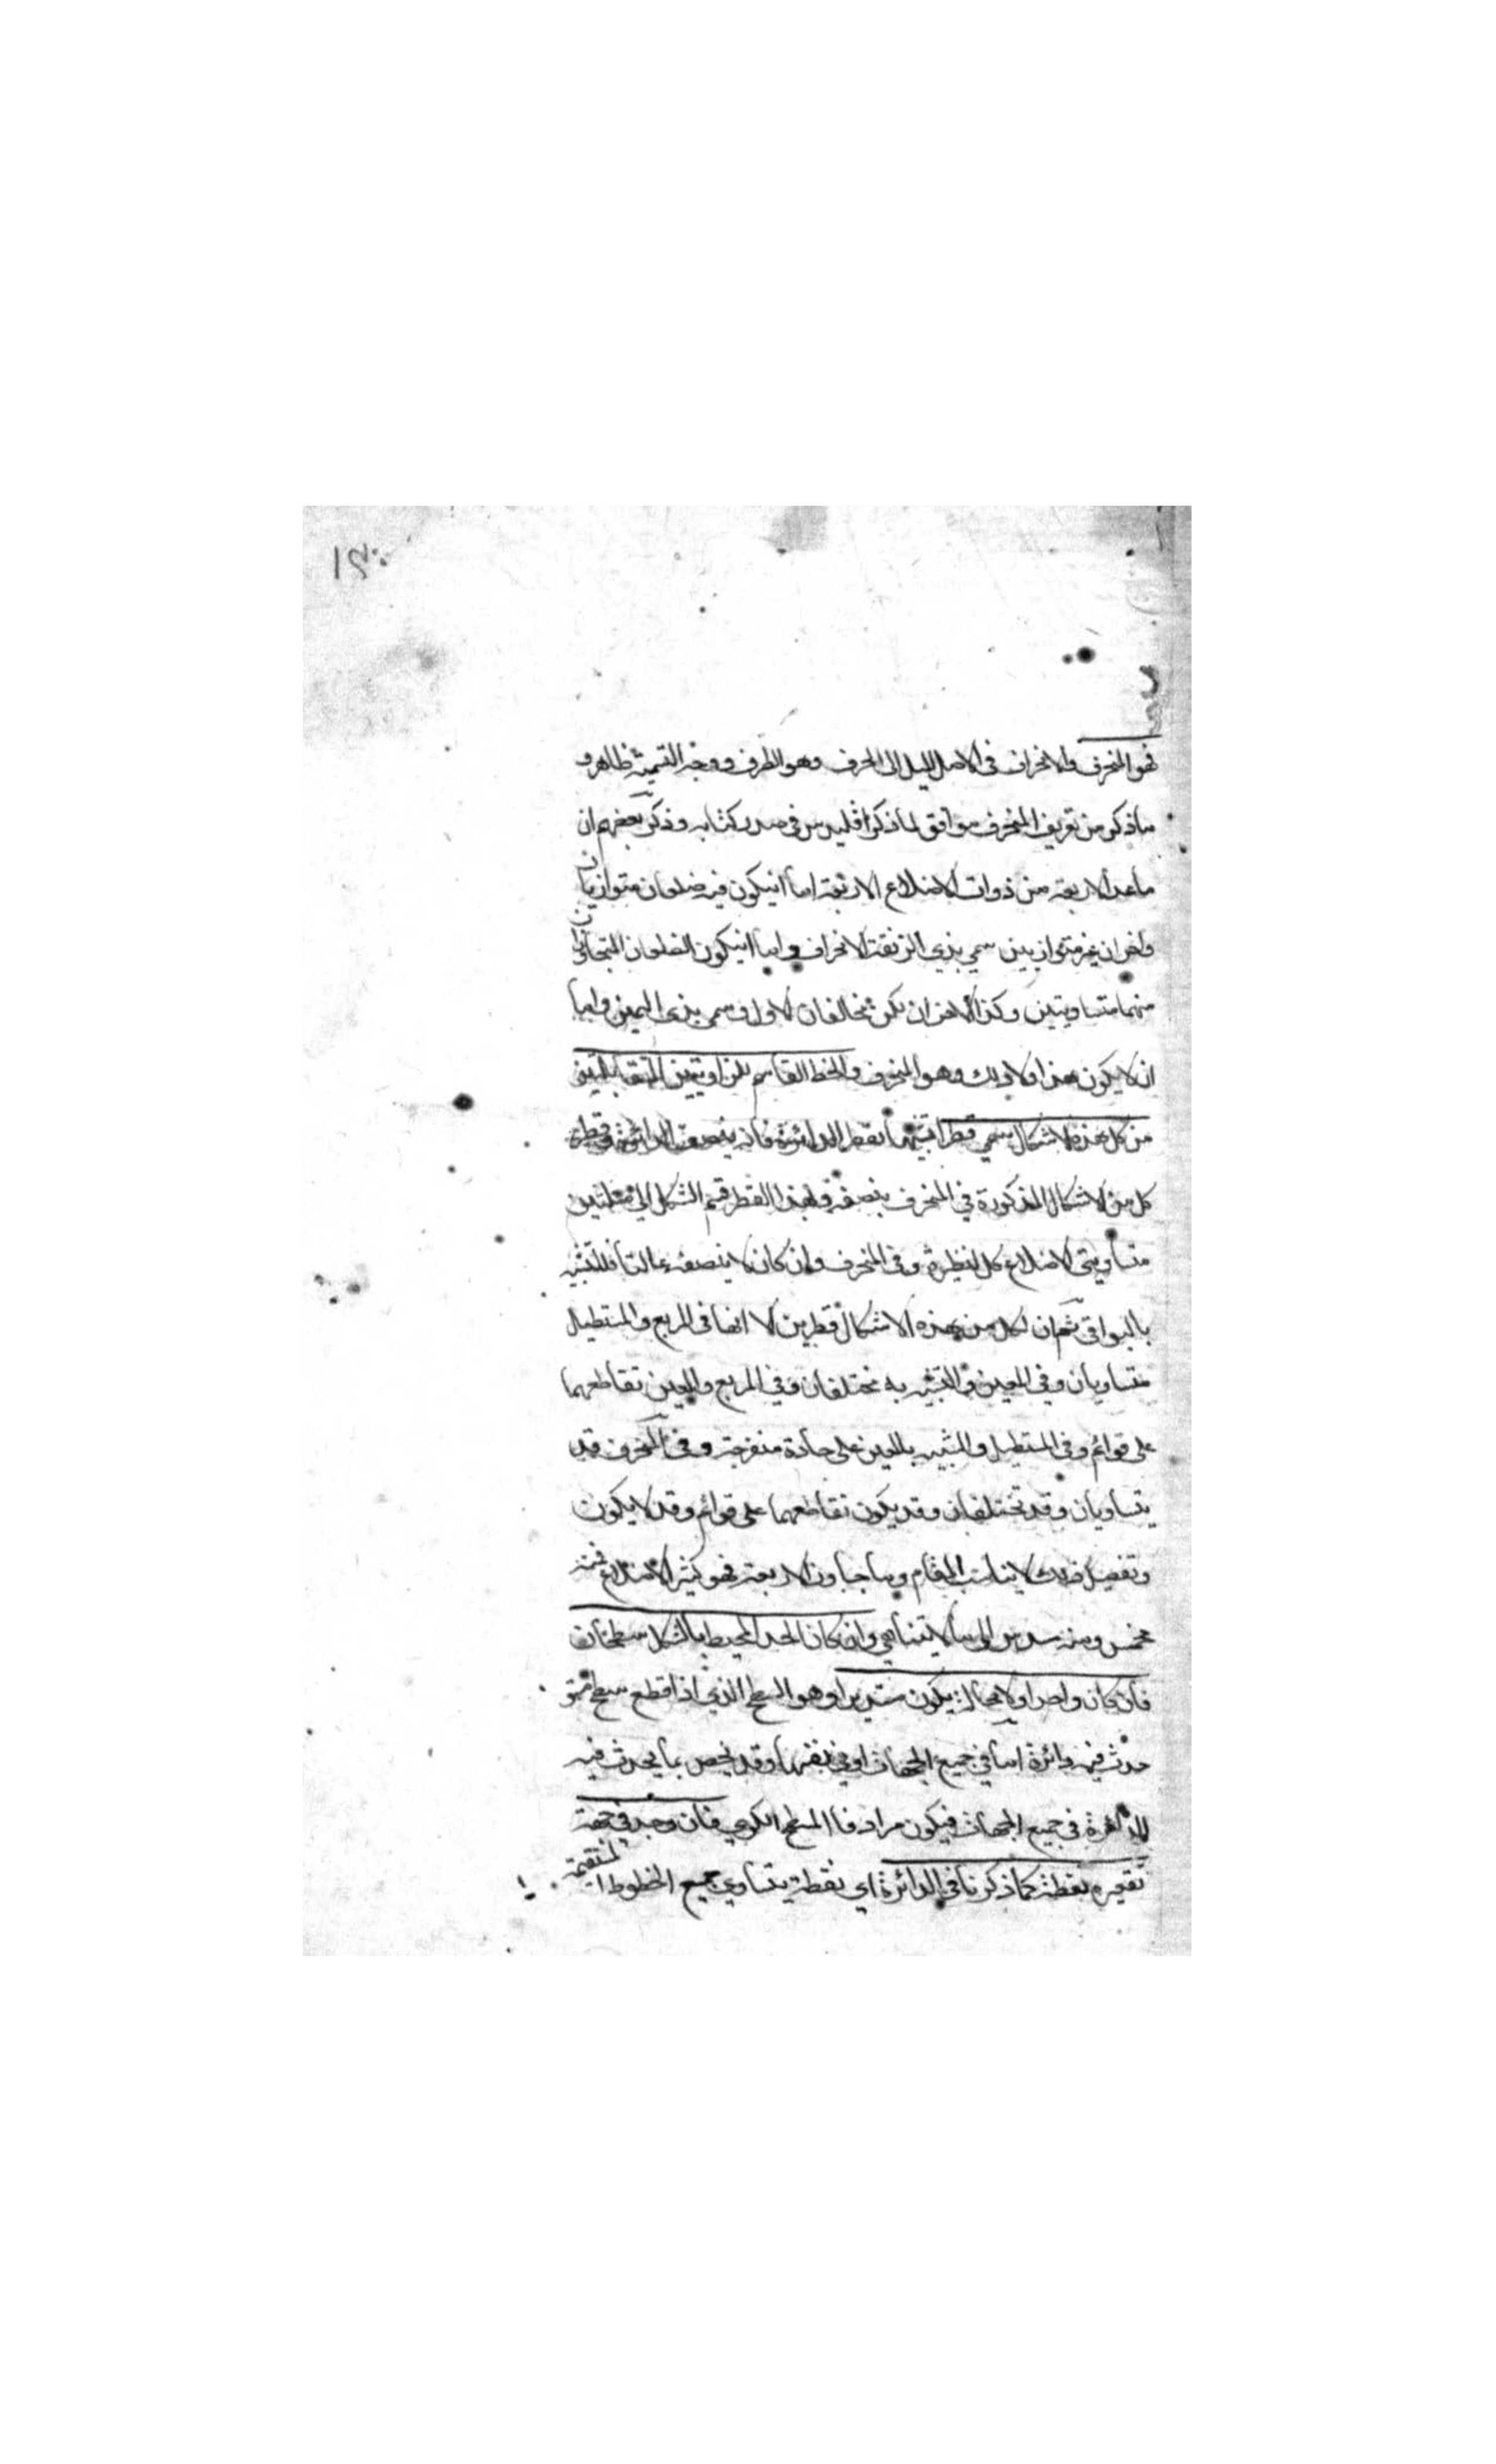 فهو المنحرف والانحراف في الاصل الميل الى الحرف وهو الطرف ووجه التسمية ظاهر و
ما ذكر من تعريف المنحرف موافق لما ذكر اقليدس في صدر كتابه وذكر بعضهم ان
ما عدا الاربعة من ذوات الاضلاع الاربعة اما انيكون فيه ضلعان متوازيان
واخران غير متوازيين سمي بذي الزنقة الانحراف واما انيكون الضلعان المتجاوران
منهما متساويتين وكذا الاخران لكن يخالفان الاول وسمي بذي اليمين واما
ان لا يكون هذا ولا ذلك وهو المنحرف والخط القاسم للزاويتين المتقابلتين
من كل هذه الاشكال يسمي قطرا تشبيها بقطر الدائرة فانه ينصف الدائرة وقطر
كل من الاشكال المذكورة في المنحرف ينصفه ولهذا القطر قسم الشكل الى مثلثين
متساويتي الاضلاع كل لنظيرة وفي المنحرف وان كان لا ينصفه غالبا فللتشبيه
بالبواقي ثم ان لكل من هذه الاشكال قطرين الا انها في المربع والمستطيل
متساويان وفي المعين والشبيه به مختلفان وفي المربع والمعين تقاطعهما
على قوائم وفي المستطيل والشبيه بالمعين على حادة منفرجة وفي المنحرف قد
يتساويان وقد تختلفان وقد يكون تقاطعهما على قوائم وقد لا يكون
وتفصيل ذلك لا يناسب المقام وما جاوز الاربعة فهو كثير الاضلاع فمنه
مخمس ومنه مسدس الى ما لا يتناهي وان كان الحد المحيط بالشكل سطحا
فان كان واحدا ولا محالة يكون مستديرا وهو السطح الذي اذا قطع بسطح مستو
حدث فيه دائرة اما في جميع الجهات او في بعضها وقد يخص بما يحدث فيه
الدائرة في جميع الجهات فيكون مرادفا للسطح الكري فان وجد في جهة
تقعيره نقطة كما ذكرنا في الدائرة اي نقطة يتساوي جميع الخطوط المستقيمة